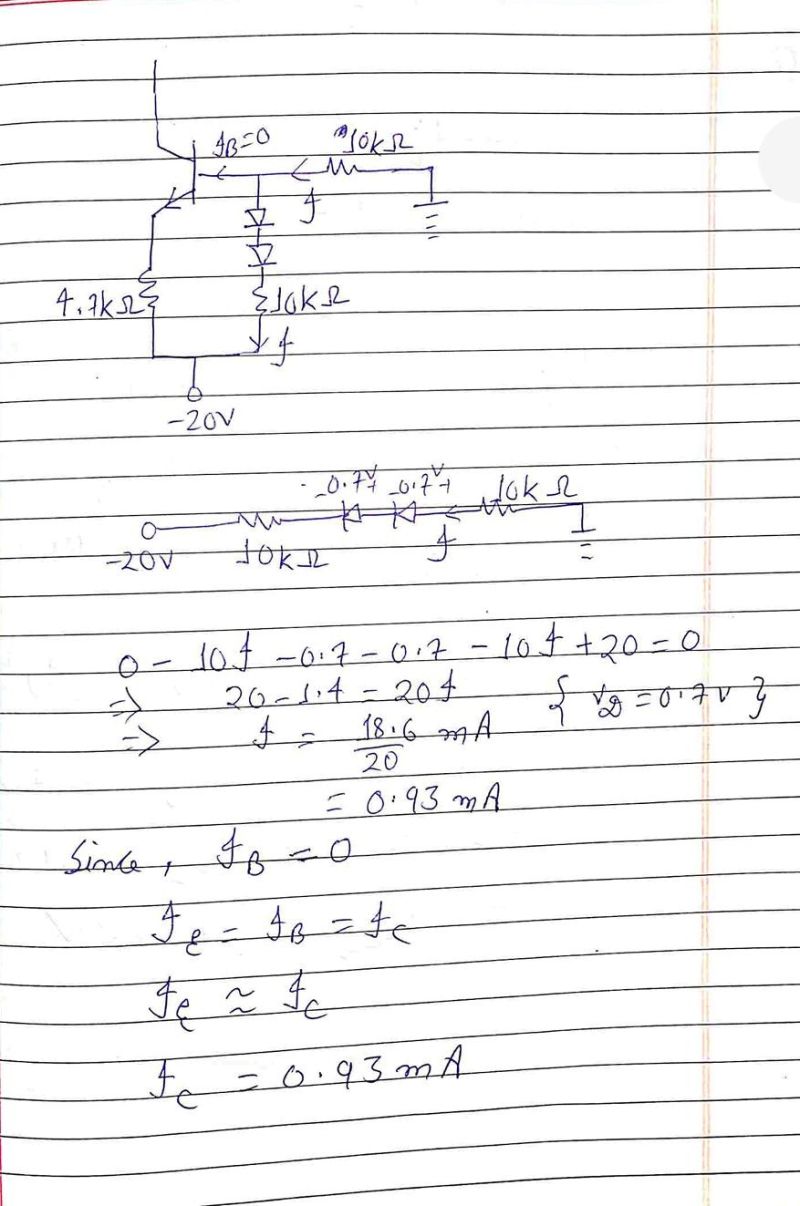 I_B=0 10kΩ
I
4.7kΩ 10kΩ
I
-20V
-0.7V+ -0.7V+ 10kΩ
-20V 10kΩ I
0 - 10I - 0.7 - 0.7 - 10I + 20 = 0
⇒ 20 - 1.4 = 20I { V_D = 0.7V }
⇒ I = 18.6/20 mA
= 0.93 mA
Since, I_B = 0
I_E = I_B = I_C
I_E ≈ I_C
I_C = 0.93 mA